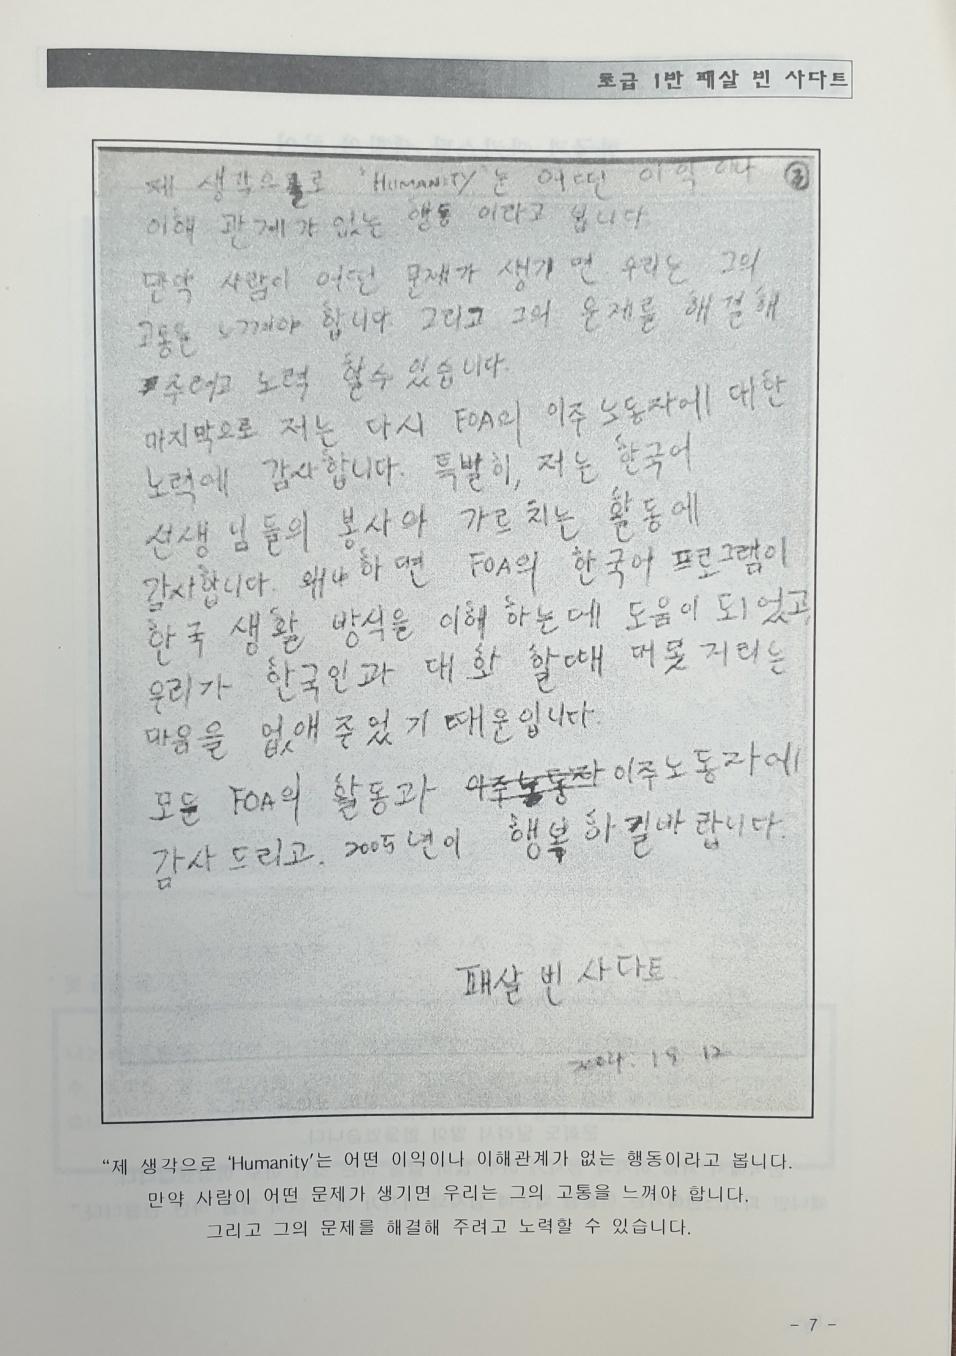 초급 1반 패살 빈 사다트
③
제 생각으로 'HUMANITY'는 어떤 이익이나
이해 관계가 없는 행동 이라고 봅니다.
만약 사람이 어떤 문제가 생기면 우리는 그의
고통을 느껴야 합니다. 그리고 그의 문제를 해결해
주려고 노력 할수 있습니다.
마지막으로 저는 다시 FOA의 이주 노동자에 대한
노력에 감사합니다. 특별히, 저는 한국어
선생님들의 봉사와 가르치는 활동에
감사합니다. 왜냐하면 FOA의 한국어 프로그램이
한국 생활 방식을 이해 하는데 도움이 되었고,
우리가 한국인과 대화 할때 머뭇거리는
마음을 없애 주었기 때문입니다.
모든 FOA의 활동과 이주노동자에
감사 드리고. 2005년이 행복하길바랍니다.
패살 빈 사다트
2004. 12
“제 생각으로 ‘Humanity’는 어떤 이익이나 이해관계가 없는 행동이라고 봅니다.
만약 사람이 어떤 문제가 생기면 우리는 그의 고통을 느껴야 합니다.
그리고 그의 문제를 해결해 주려고 노력할 수 있습니다.
- 7 -